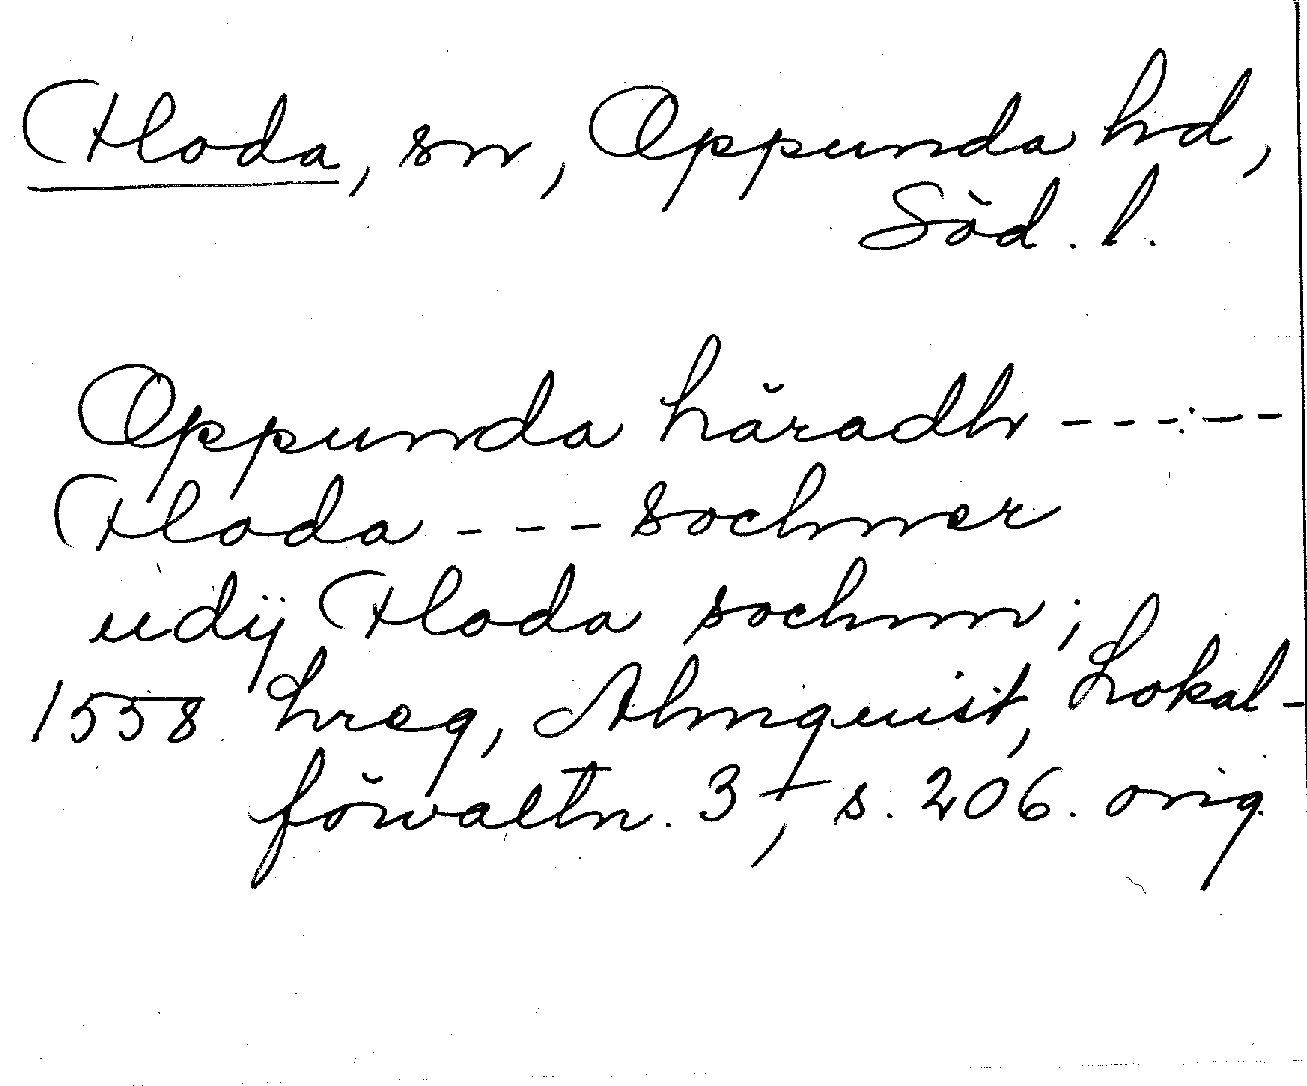 Floda, sn, Oppunda hd,
Söd. l.
Oppunda häradh - - - - -
Floda - - - sochner
udij Floda sochnn;
1558 hreg, Almquist, Lokal-
förvaltn. 3, s. 206. orig.